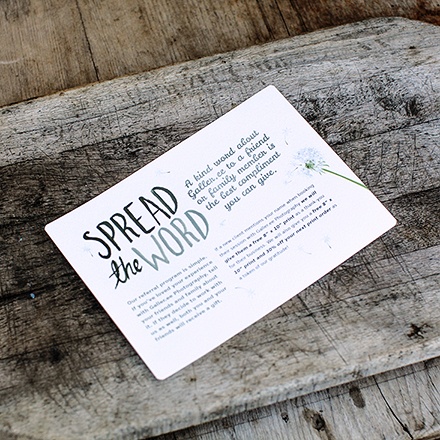 SPREAD
the WORD
A kind word about
Gallen.ee to a friend
or family member is
the best compliment
you can give.
Our referral program is simple.
If you've loved your experience
with Gallen.ee Photography, tell
your friends and family about
it. If they decide to work with
us as well, both you and your
friends will receive a gift.
If a new client mentions your name when booking
their session with Gallen.ee Photography we will
give them a free 8" x 10" print as a thank you
for their business. We will also give you a free 8" x
10" print and 20% off your next print order as
a token of our gratitude!